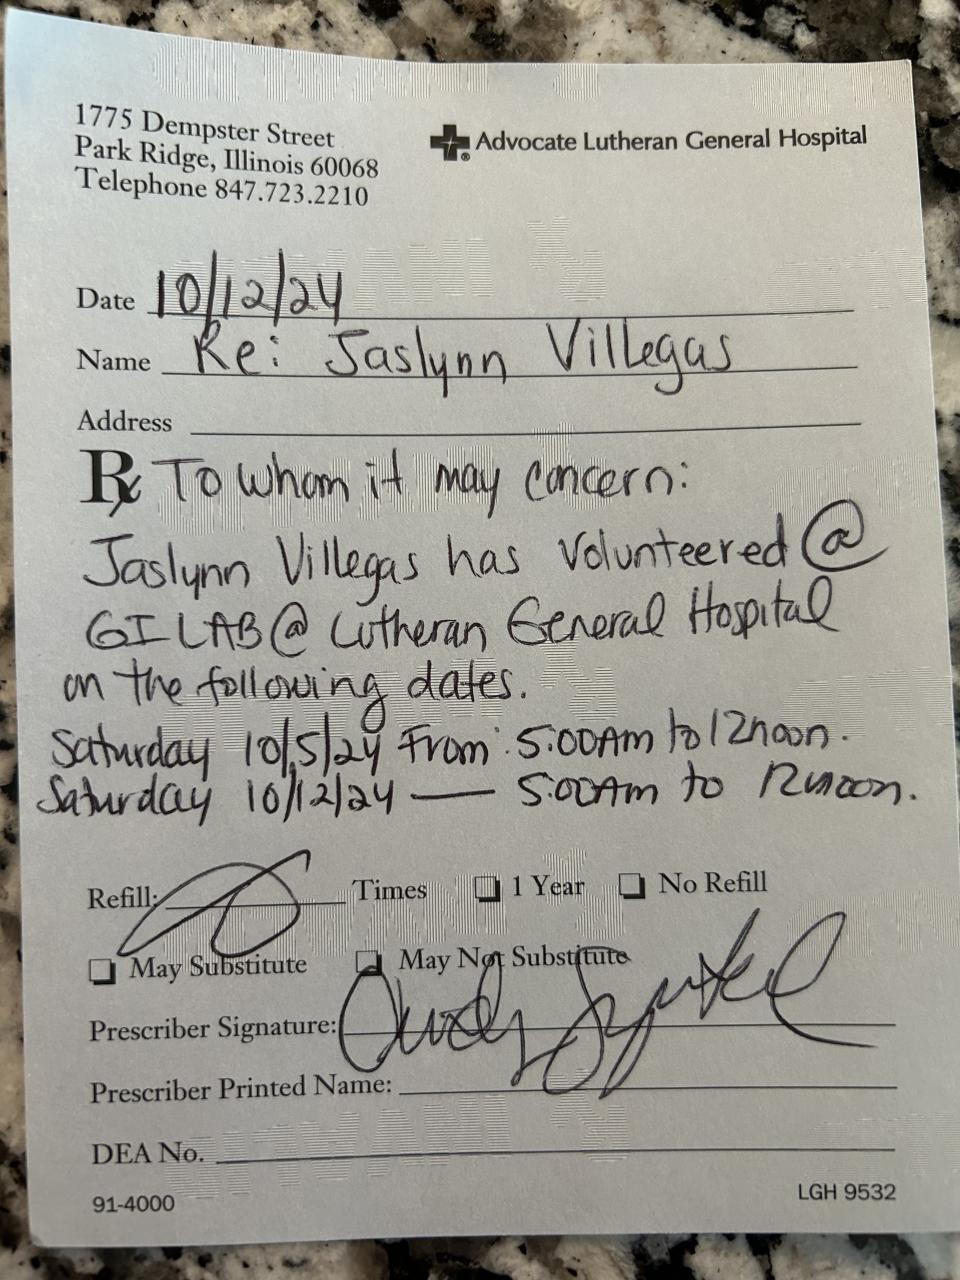 1775 Dempster Street
Park Ridge, Illinois 60068
Telephone 847.723.2210
Advocate Lutheran General Hospital
Date 10/12/24
Name Re: Jaslynn Villegas
Address
Rx To whom it may concern:
Jaslynn Villegas has volunteered @
GI LAB @ Lutheran General Hospital
on the following dates.
Saturday 10/5/24 From: 5:00AM to 12noon.
Saturday 10/12/24 — 5:00AM to 12noon.
Refill: Times 1 Year No Refill
May Substitute May Not Substitute
Prescriber Signature:
Prescriber Printed Name:
DEA No.
91-4000
LGH 9532